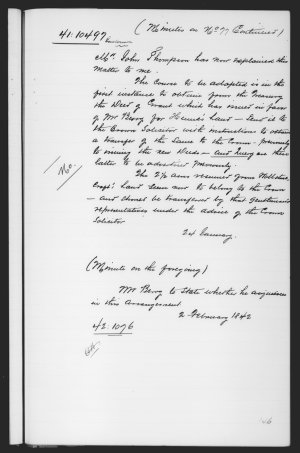 41.10497 (Minutes on No 77 Continued)
Mr. John Thompson has now explained this
matter to me.
The Course to be adopted is in the
first instance to obtain from the Treasury
the Deed of Grant which has issued in favor
of Mr Berry for Land – Send it to
the Crown Solicitor with instructions to obtain
a transfer of the same to the Crown – previously
to issuing the new Deeds – and they are then
latter to be advertised previously
The 2¼ acres resumed from
Land seem not to belong to the Crown
– and should be transferred by that Gentleman's
representatives under the advice of the Crown
Solicitor
24 January.
(Minute on the foregoing)
Mr Berry to State whether he acquiesces
in this Arrangement
2 February 1842
42.1076